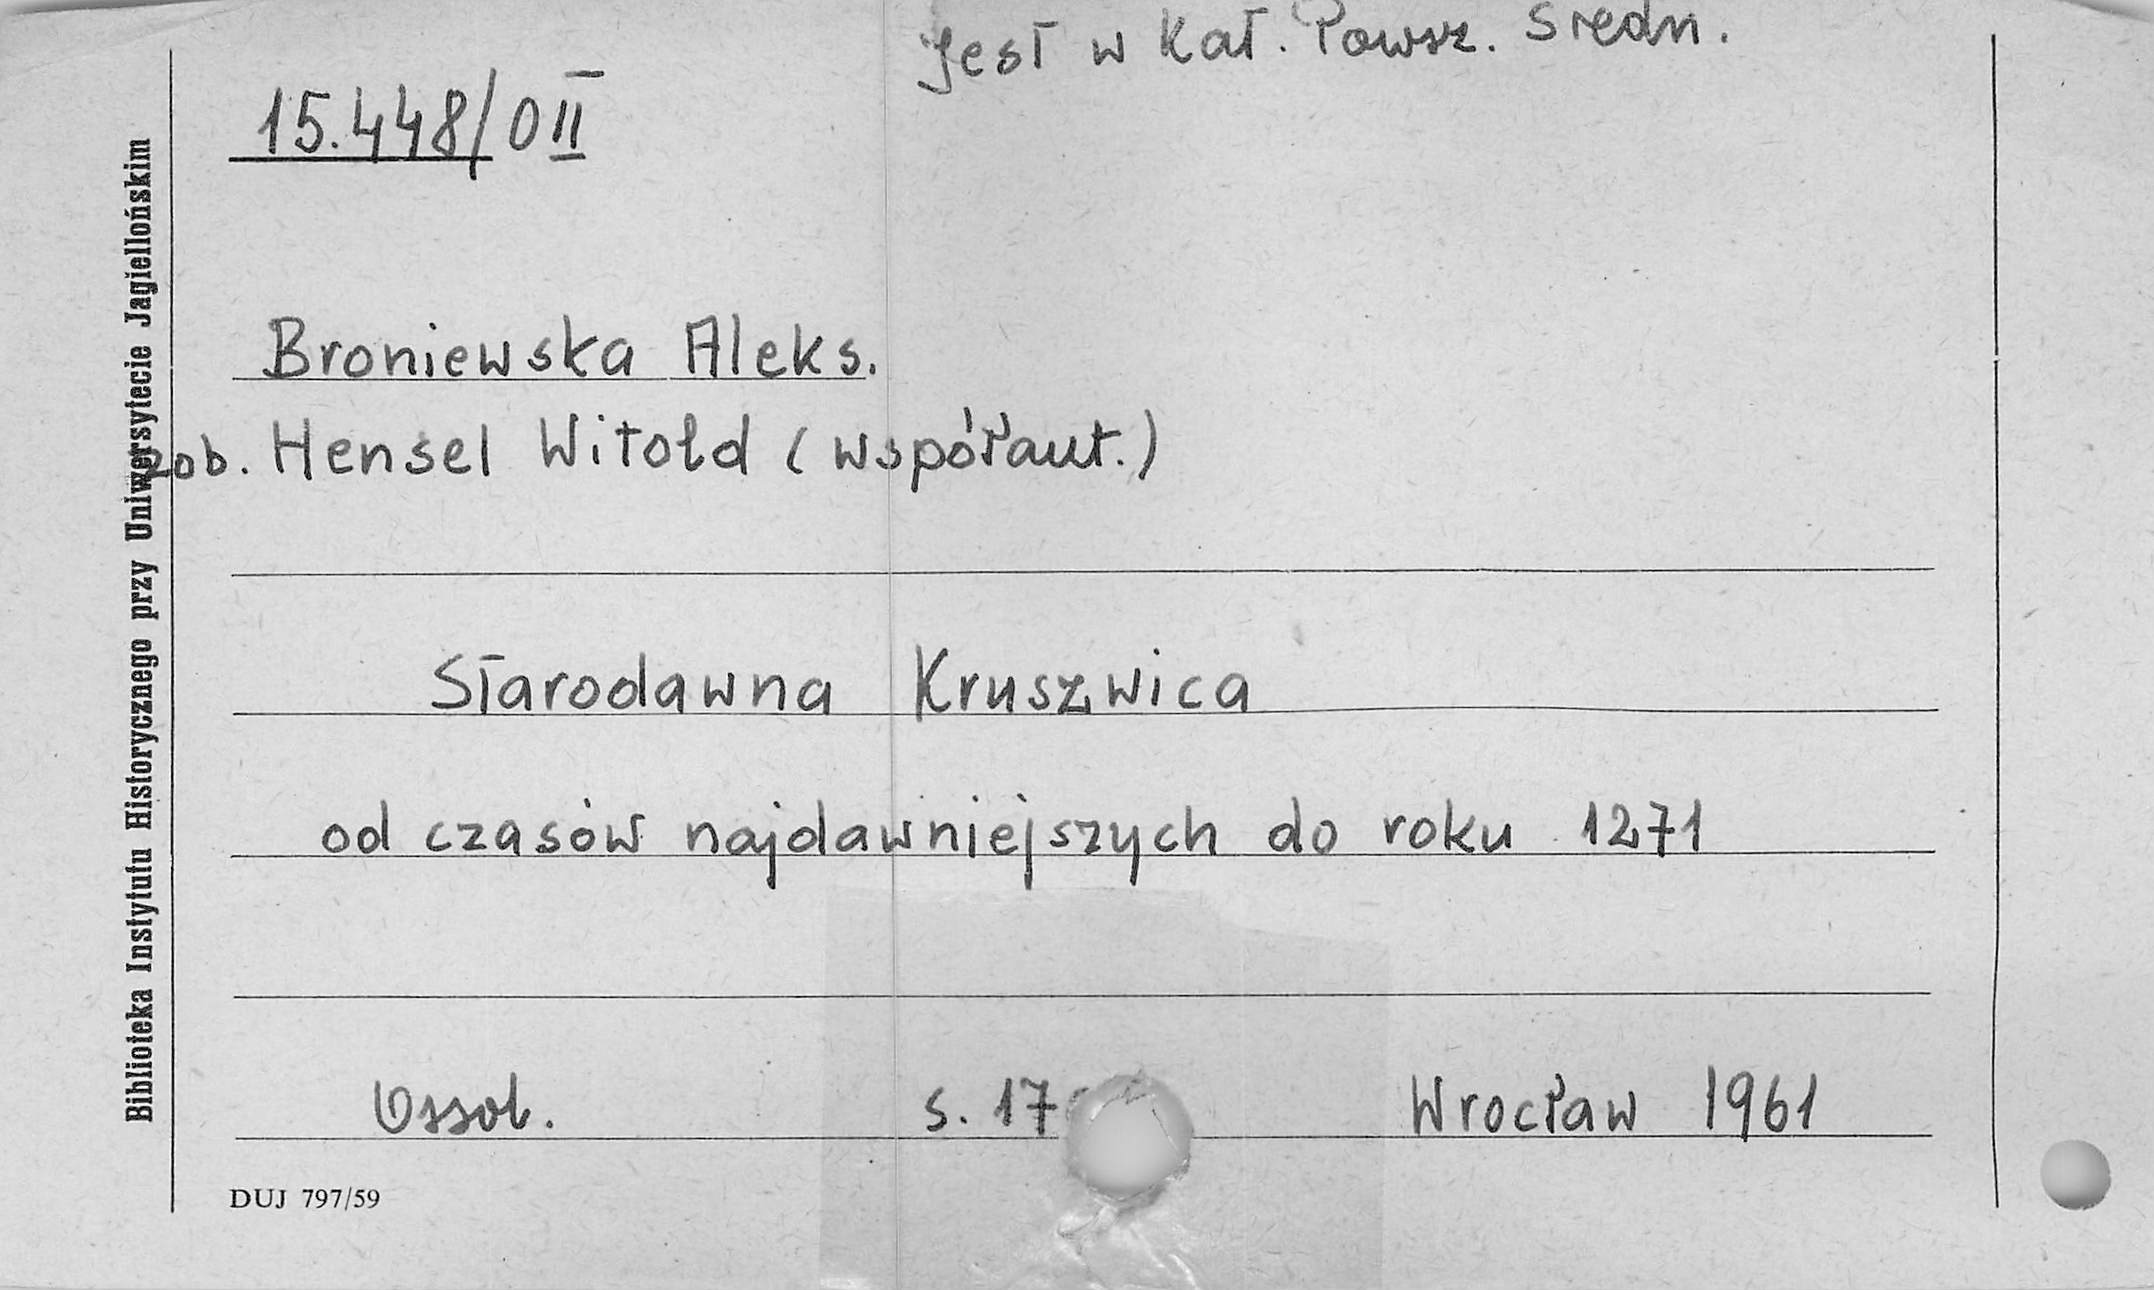 Jest w Kat. Powsz. Średn.
15.448/O II
Broniewska Aleks.
zob. Hensel Witold (współaut.)
Starodawna Kruszwica
od czasów najdawniejszych do roku 1271
Ossol. s. 17 Wrocław 1961
DUJ 797/59
Biblioteka Instytutu Historycznego przy Uniwersytecie Jagiellońskim